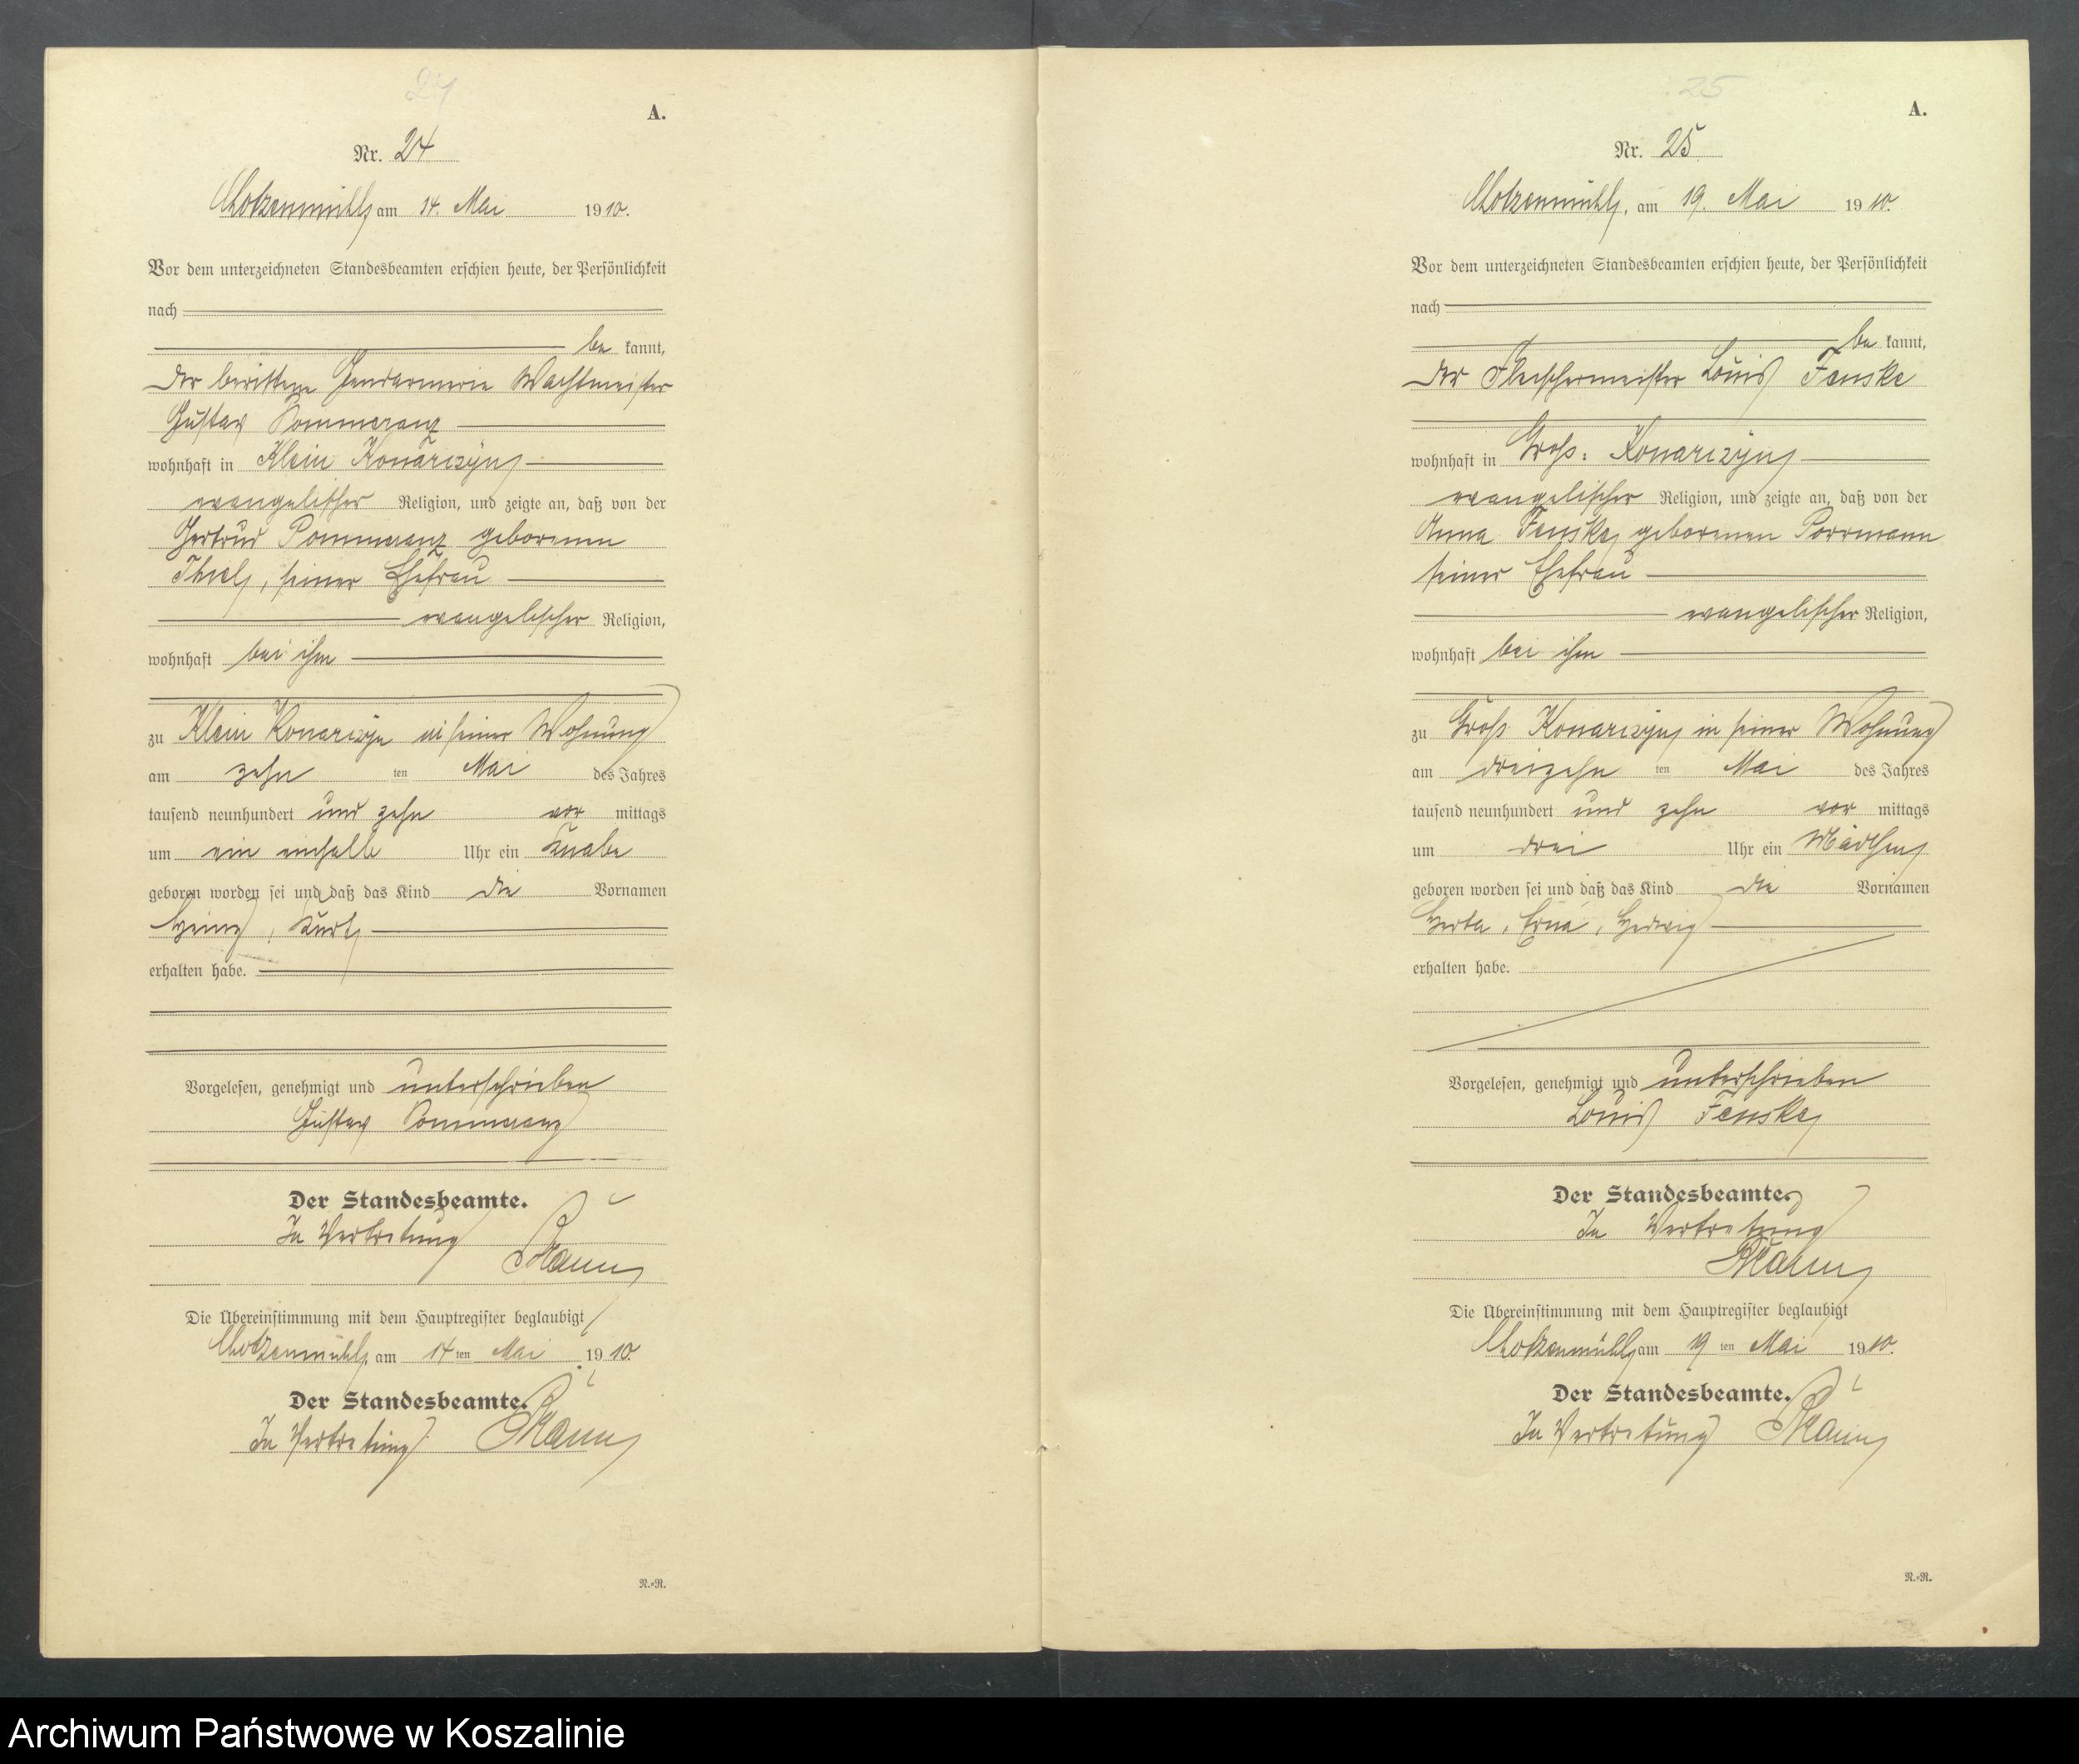 24
A.
Nr. 24
Chotzenmühl am 14. Mai 1910.
Vor dem unterzeichneten Standesbeamten erschien heute, der Persönlichkeit
nach
be kannt,
der berittene Gendarmerie Wachtmeister
Gustav Pommeranz
wohnhaft in Klein Konarczyn
evangelischer Religion, und zeigte an, daß von der
Gertrud Pommeranz geborenen
Thiel, seiner Ehefrau
evangelischer Religion,
wohnhaft bei ihm
zu Klein Konarczyn in seiner Wohnung
am zehn ten Mai des Jahres
tausend neunhundert und zehn vor mittags
um ein einhalb Uhr ein Knabe
geboren worden sei und daß das Kind die Vornamen
Heinz, Kurt
erhalten habe.
Vorgelesen, genehmigt und unterschrieben
Gustav Pommeranz
Der Standesbeamte.
In Vertretung
Die Übereinstimmung mit dem Hauptregister beglaubigt
Chotzenmühl am 14 ten Mai 1910.
Der Standesbeamte.
In Vertretung
N.=R.
25
A.
Nr. 25
Chotzenmühl, am 19. Mai 1910.
Vor dem unterzeichneten Standesbeamten erschien heute, der Persönlichkeit
nach
be kannt,
der Fleischermeister Louis Fenske
wohnhaft in Groß: Konarczyn
evangelischer Religion, und zeigte an, daß von der
Anna Fenske geborenen Porrmann
seiner Ehefrau
evangelischer Religion,
wohnhaft bei ihm
zu Groß Konarczyn in seiner Wohnung
am dreizehn ten Mai des Jahres
tausend neunhundert und zehn vor mittags
um drei Uhr ein Mädchen
geboren worden sei und daß das Kind die Vornamen
Herta, Erna, Hedwig
erhalten habe.
Vorgelesen, genehmigt und unterschrieben
Louis Fenske
Der Standesbeamte.
In Vertretung
Die Übereinstimmung mit dem Hauptregister beglaubigt
Chotzenmühl am 19 ten Mai 1910.
Der Standesbeamte.
In Vertretung
N.=R.
Archiwum Państwowe w Koszalinie